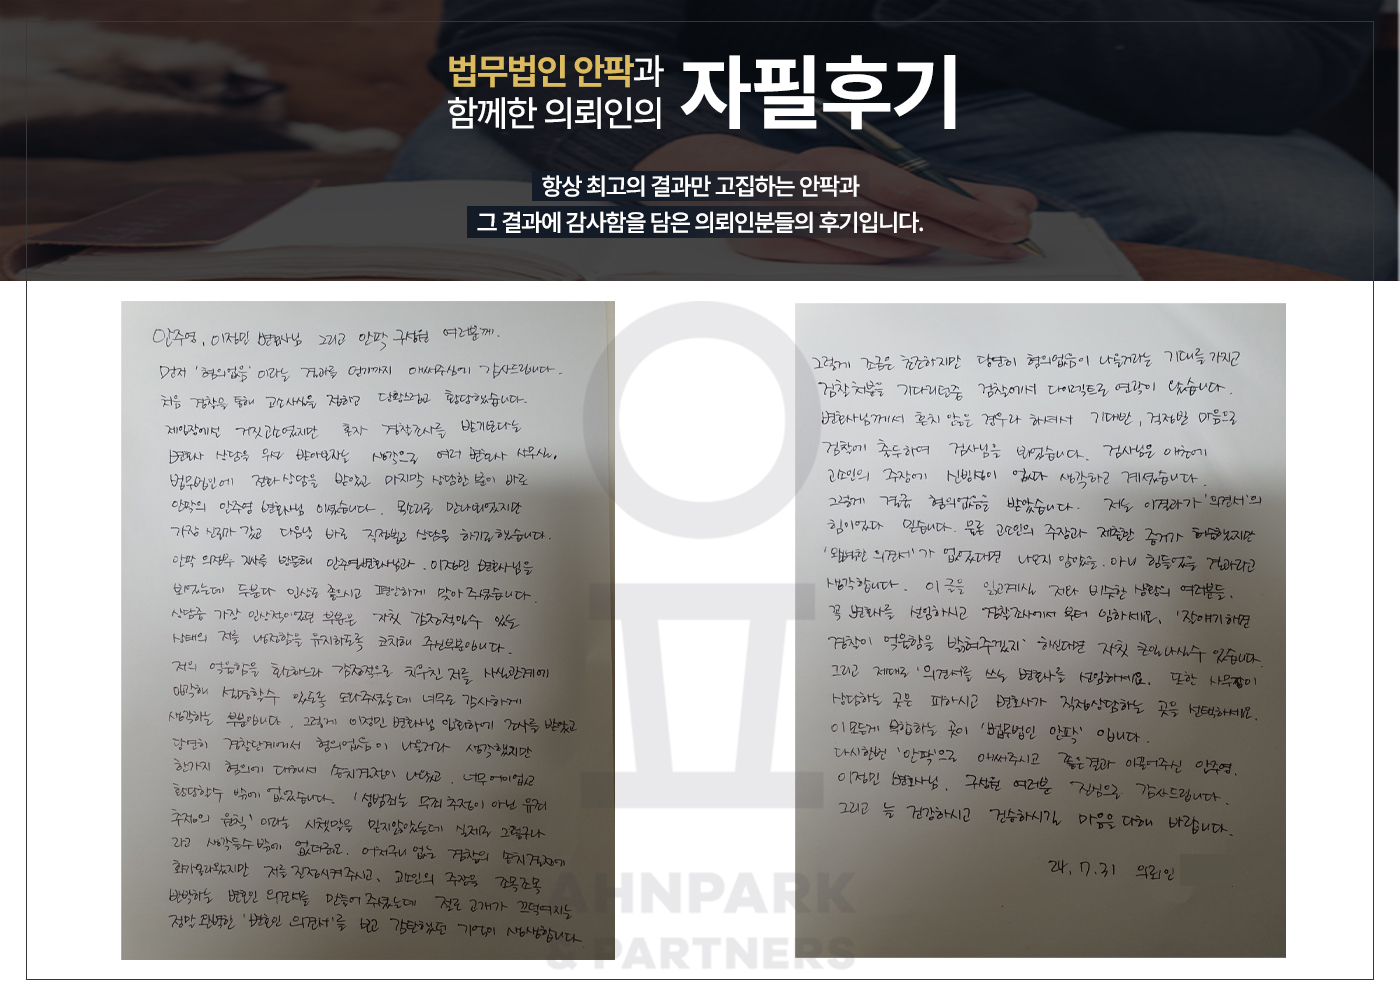 법무법인 안팍과
함께한 의뢰인의
자필후기
항상 최고의 결과만 고집하는 안팍과
그 결과에 감사함을 담은 의뢰인분들의 후기입니다.
안주영, 이정민 변호사님 그리고 안팍 구성원 여러분께.
먼저 '혐의없음' 이라는 결과를 얻기까지 애써주심에 감사드립니다.
처음 경찰을 통해 고소사실을 접하고 당황스럽고 황당했습니다.
제입장에선 거짓고소였지만 혼자 경찰조사를 받기보다는
변호사 상담을 우선 받아보자는 생각으로 여러 변호사 사무실,
법무법인에 전화상담을 받았고 마지막 상담한 분이 바로
안팍의 안주영 변호사님 이셨습니다. 목소리로 만나뵈었지만
가장 신뢰가 갔고 다음날 바로 직접뵙고 상담을 하기로했습니다.
안팍 의정부 지사를 방문해 안주영변호사님과, 이정민 변호사님을
뵈었는데 두분다 인상도 좋으시고 편안하게 맞아주셨습니다.
상담중 가장 인상적이었던 부분은 자칫 감정적일수 있는
상태의 저를 냉정함을 유지하도록 코치해 주신부분입니다.
저의 억울함을 항소하느라 감정적으로 치우친 저를 사실관계에
입각해 설명할수 있도록 도와주셨는데 너무도 감사하게
생각하는 부분입니다. 그렇게 이정민 변호사님 입회하에 조사를 받았고
당연히 경찰단계에서 혐의없음이 나올거라 생각했지만
한가지 혐의에 대해서 송치결정이 나왔고, 너무어이없고
황당할수 밖에 없었습니다. '성범죄는 무죄추정이 아닌 유죄
추정의 원칙' 이라는 시쳇말을 믿지않았는데 실제로 그렇구나
라고 생각들수밖에 없더군요. 어처구니 없는 경찰의 송치결정에
화가올라왔지만 저를 진정시켜주시고, 고소인의 주장을 조목조목
반박하는 변호인 의견서를 만들어주셨는데 절로 고개가 끄덕여지는
정말 완벽한 '변호인 의견서'를 보고 감탄했던 기억이 생생합니다.
그렇게 조금은 초조하지만 당연히 혐의없음이 나올거라는 기대를 가지고
검찰처분을 기다리던중 검찰에서 다이렉트로 연락이 왔습니다.
변호사님께서 흔치 않은 경우라 하셔서 기대반, 걱정반 마음으로
검찰에 출두하여 검사님을 뵈었습니다. 검사님은 애초에
고소인의 주장에 신빙성이 없다 생각하고 계셨습니다.
그렇게 결국 혐의없음을 받았습니다. 저는 이결과가 '의견서'의
힘이었다 믿습니다. 물론 고소인의 주장과 제출한 증거가 허술했지만
'완벽한 의견서'가 없었다면 나오지 않았을. 아니 힘들었을 결과라고
생각합니다. 이 글을 읽고계실 저와 비슷한 상황의 여러분들.
꼭 변호사를 선임하시고 경찰조사에서 부터 임하세요. '잘얘기하면
경찰이 억울함을 밝혀주겠지' 하신다면 자칫 큰일나실수 있습니다.
그리고 제대로 '의견서를 쓰는 변호사를 선임하세요. 또한 사무장이
상담하는 곳은 피하시고 변호사가 직접상담하는 곳을 선택하세요.
이모든게 부합하는 곳이 '법무법인 안팍' 입니다.
다시한번 '안팍'으로 애써주시고 좋은결과 이끌어주신 안주영,
이정민 변호사님, 구성원 여러분 진심으로 감사드립니다.
그리고 늘 건강하시고 건승하시길 마음을 다해 바랍니다.
24. 7. 31 의뢰인
AHNPARK
& PARTNERS